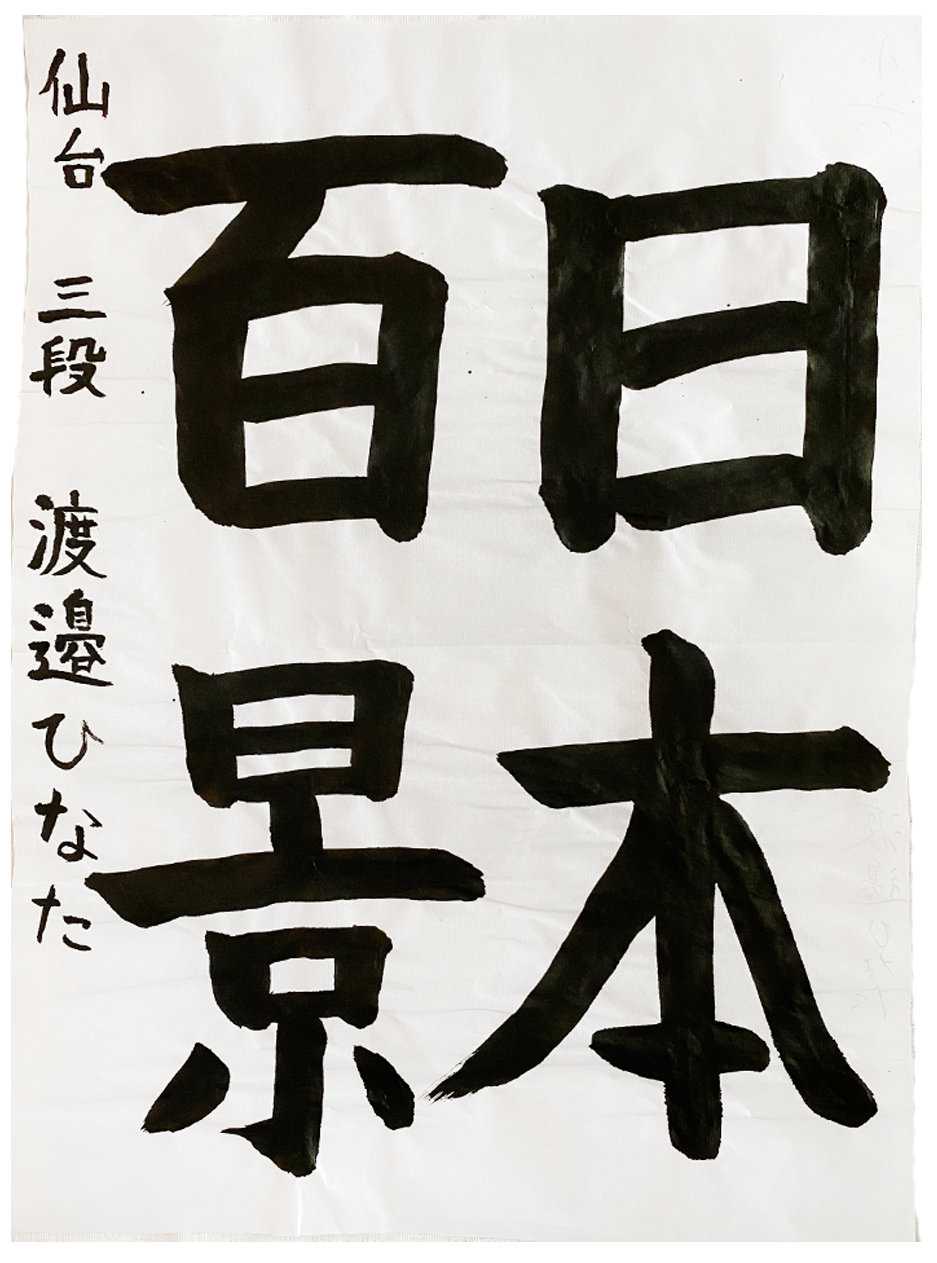 日本
百景
仙台 三段 渡邉ひなた